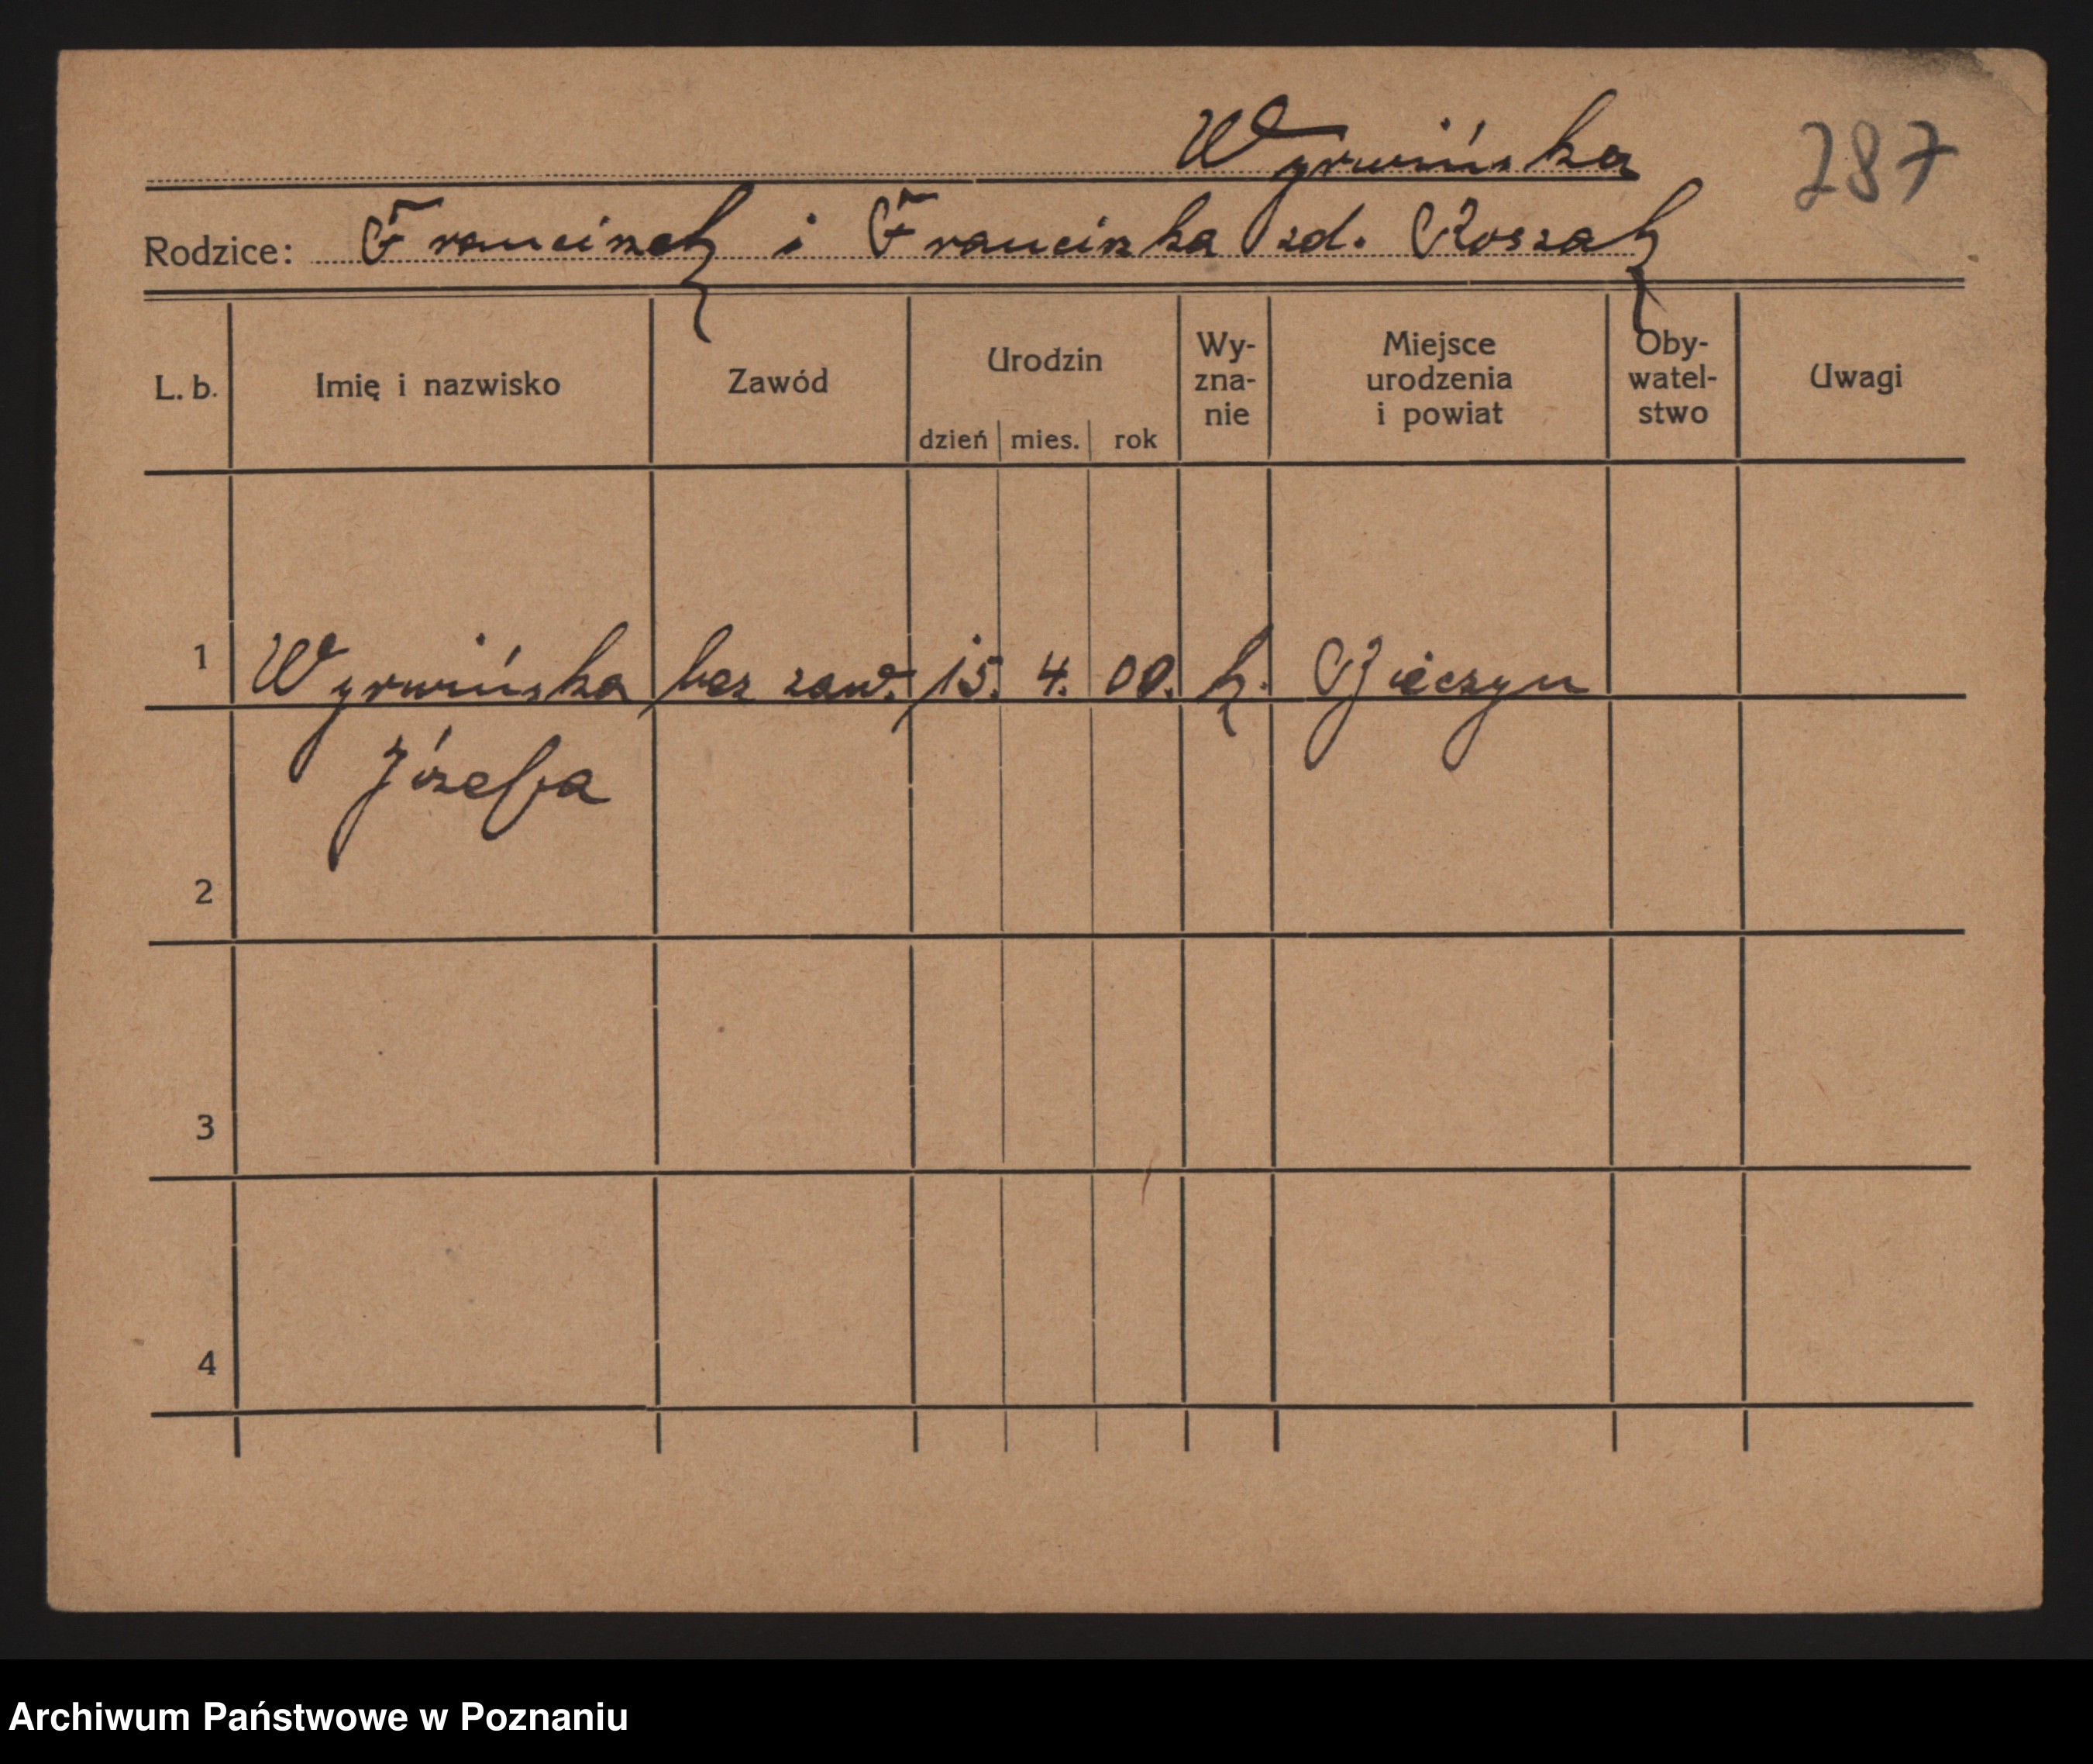 Wyrwińska
287
Rodzice: Franciszek i Franciszka zd. Roszak
L. b. Imię i nazwisko Zawód Urodzin dzień mies. rok Wy-zna-nie Miejsce urodzenia i powiat Oby-watel-stwo Uwagi
1 Wyrwińska bez zaw. 15. 4. 00. k.
Józefa
2
3
4
Archiwum Państwowe w Poznaniu